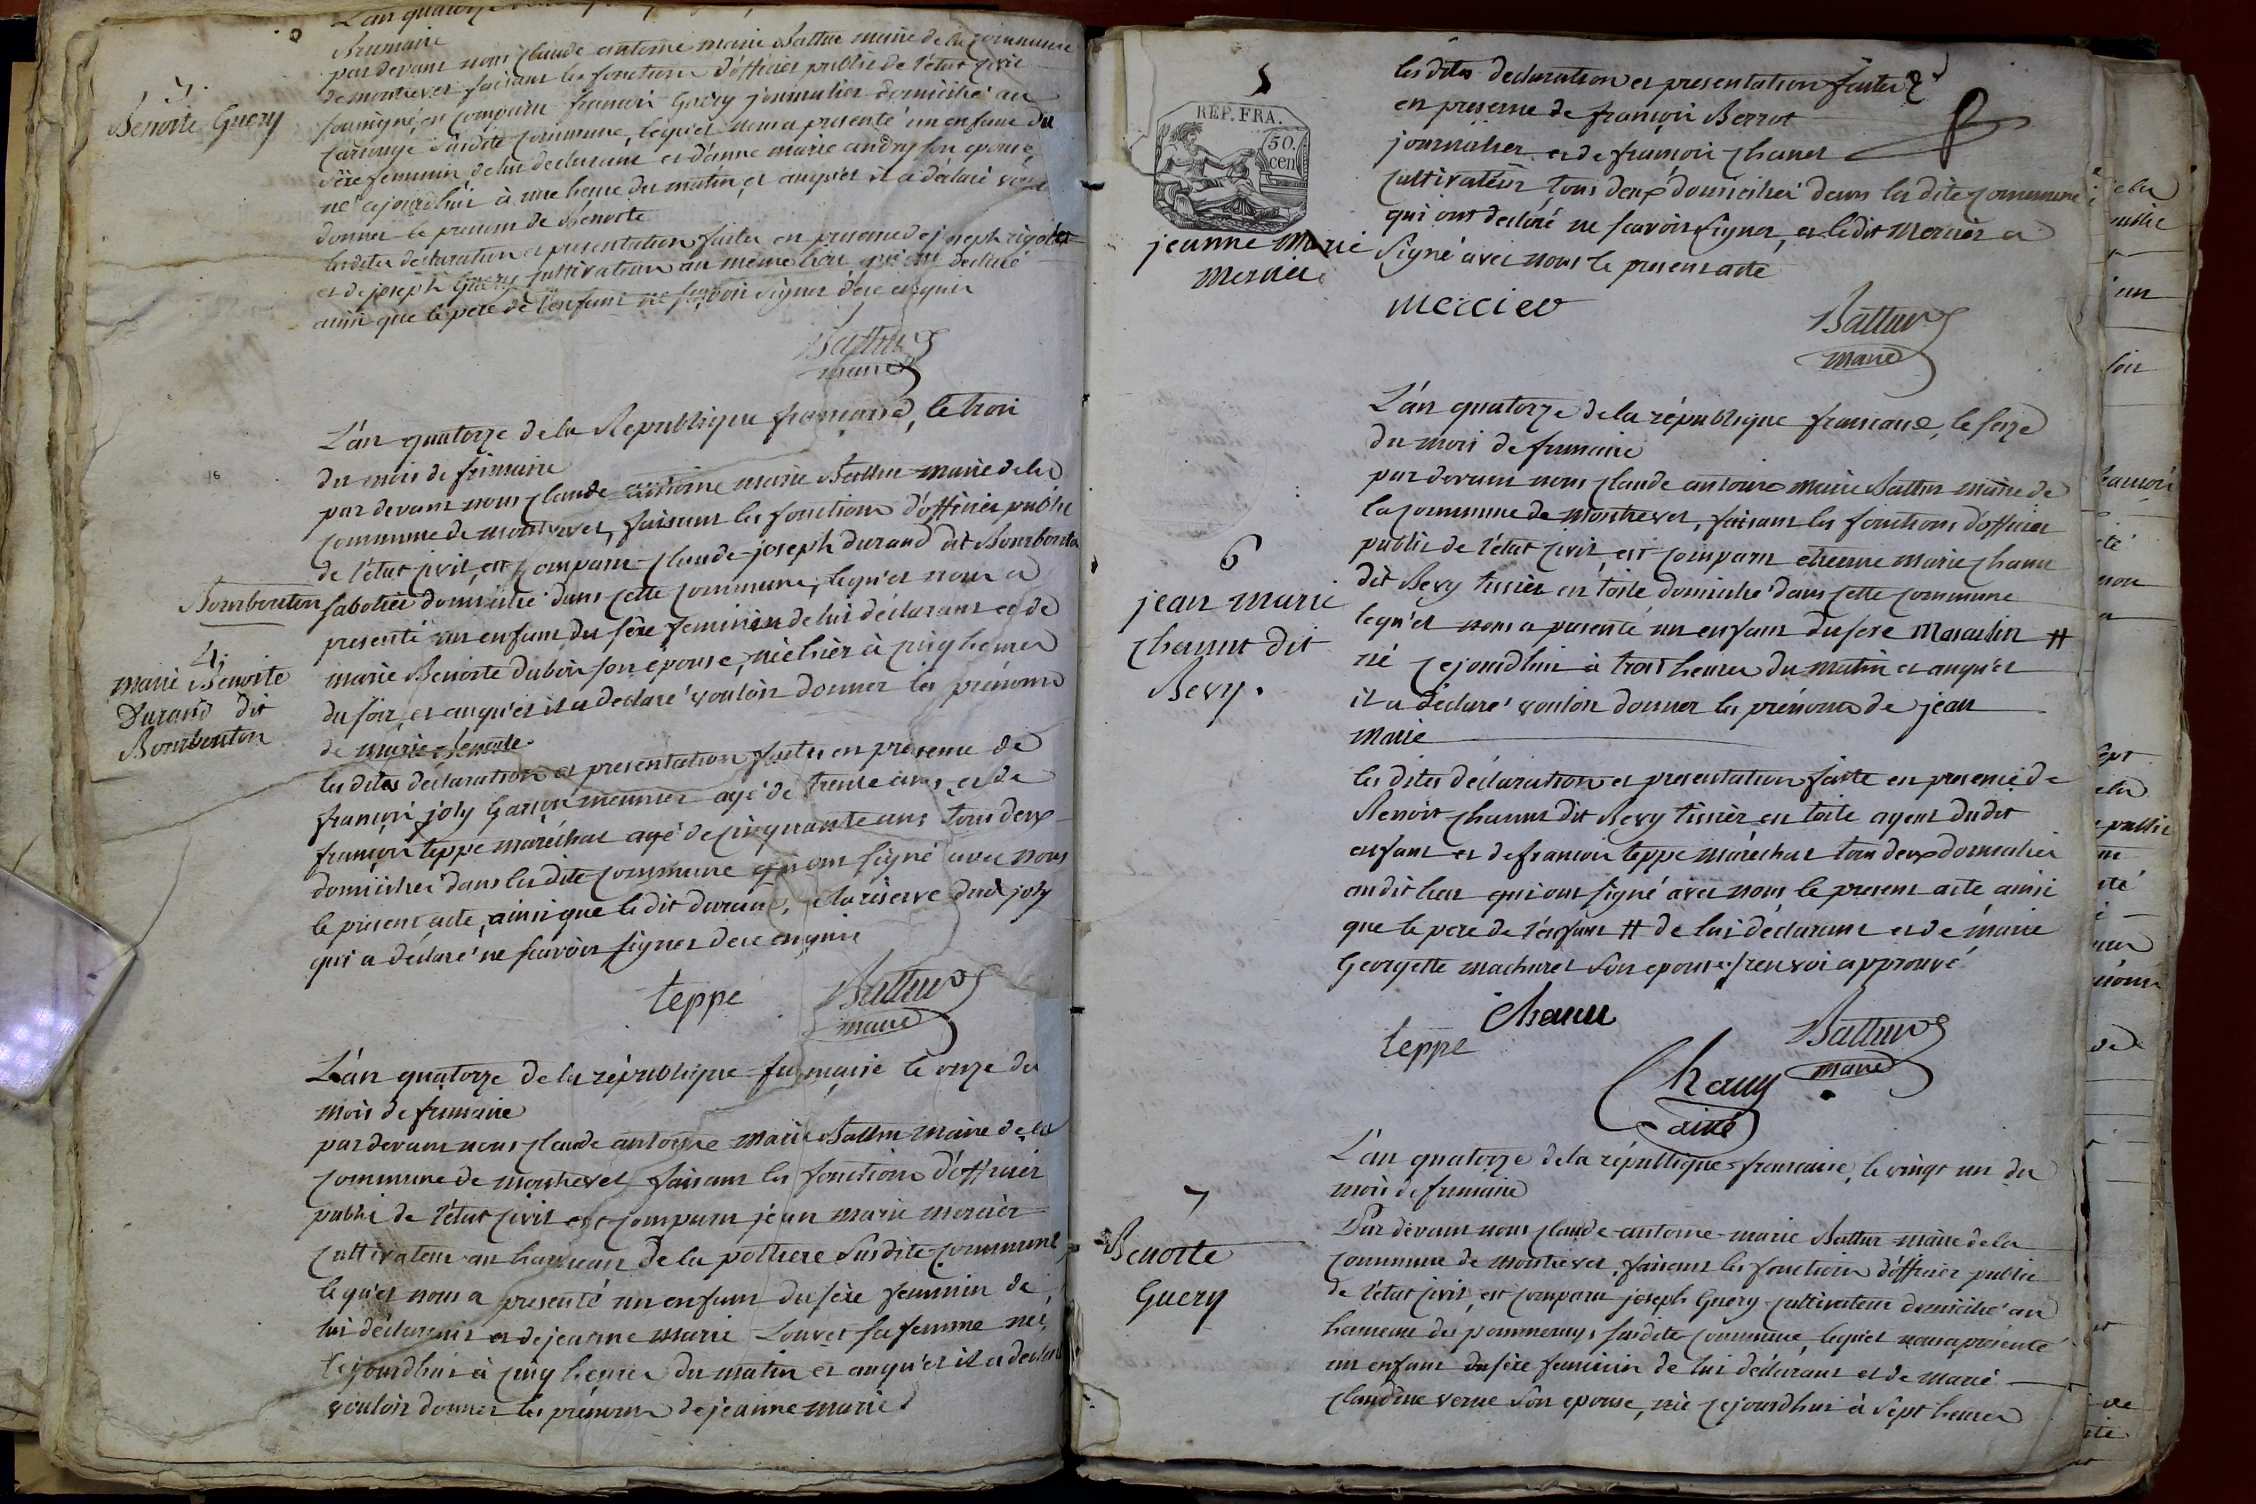 L'an quatorze
Brumaire
par devant nous Claude antoine marie Battur maire de la commune
de montrevel faisant les fonctions d'officier public de l'état civil
soussigné, est comparu françois Guery journalier domicilié au
susdite commune, lequel nous a presenté un enfant du
sexe feminin de lui declarant et d'anne marie andry son epouse,
né cejourdhui à une heure du matin, et auquel il a déclaré vouloir
donner le prenom de Benoite
lesdites déclaration et presentation faites en presence de joseph
et de joseph Guery cultivateur au même lieu qui ont déclaré
ainsi que le pere de l'enfant ne sçavoir signer de ce enquis
3.
Benoite Guery
Battur
maire
L'an quatorze de la Republique française, le trois
du mois de frimaire
par devant nous Claude antoine marie Battur maire de la
commune de montrevel, faisant les fonctions d'officier public
de l'état civil, est comparu Claude joseph durand dit Bourbonton
sabotier domicilié dans cette commune, lequel nous a
presenté un enfant du sexe feminin de lui déclarant et de
marie Benoite dubois son epouse, née hier à cinq heures
du soir, et auquel il a declaré vouloir donner les prénoms
de marie Benoite
les dites déclaration et presentation faites en presence de
françois joly garçon meunier agé de trente ans, et de
françois teppe maréchal agé de cinquante ans tous deux
domiciliés dans la dite commune qui ont signé avec nous
le present acte, ainsi que le dit durand, à la réserve dud joly
qui a déclaré ne sçavoir signer de ce enquis
Bourbonton
4.
marie Benoite
Durand dit
Bourbonton
teppe
Battur
maire
L'an quatorze de la république française le onze du
mois de frimaire
par devant nous Claude antoine marie Battur maire de la
commune de montrevel faisant les fonctions d'officier
public de l'état civil est comparu jean marie mercier
cultivateur au hameau de la poltiere susdite commune,
lequel nous a presenté un enfant du sexe feminin de
lui déclarant et de jeanne marie Louvet sa femme née
cejourdhui à cinq heures du matin et auquel il a declaré
vouloir donner les prénoms de jeanne marie
5
REP. FRA.
50.
cen
jeanne Marie
Mercier
les dites declaration et presentation faites
en presence de françois Berrot
journalier et de françois Chanel
cultivateur, tous deux domiciliés dans la dite commune
qui ont declaré ne sçavoir signer, et le dit Mercier a
signé avec nous le present acte
mercier
Battur
maire
L'an quatorze de la république française, le seize
du mois de frimaire
par devant nous Claude antoine marie Battur maire de
la commune de montrevel, faisant les fonctions d'officier
public de l'état civil, est comparu etienne marie Chanu
dit Bevy tissier en toile domicilié dans cette commune
lequel nous a presenté un enfant du sexe masculin #
né cejourdhui à trois heures du matin et auquel
il a déclaré vouloir donner les prénoms de jean
marie
les dites déclaration et presentation faite en presence de
Benoit Chanu dit Bevy tissier en toile ayeul dudit
enfant et de françois teppe maréchal tous deux domiciliés
audit lieu qui ont signé avec nous le present acte, ainsi
que le pere de l'enfant # de lui déclarant et de marie
Georgette machuret son epouse / renvoi approuvé
6
jean marie
chanut dit
Bevy.
Chanu
teppe
Battur
maire
Chanu
ainé
L'an quatorze de la république française, le vingt un du
mois de frimaire
Par devant nous Claude antoine marie Battur maire de la
commune de montrevel, faisant les fonctions d'officier public
de l'état civil, est comparu joseph Guery cultivateur domicilié au
hameau des pommerays susdite commune, lequel nous a présenté
un enfant du sexe feminin de lui déclarant et de marie
Claudine verne son epouse, née cejourdhui à sept heures
7
Benoite
Guery